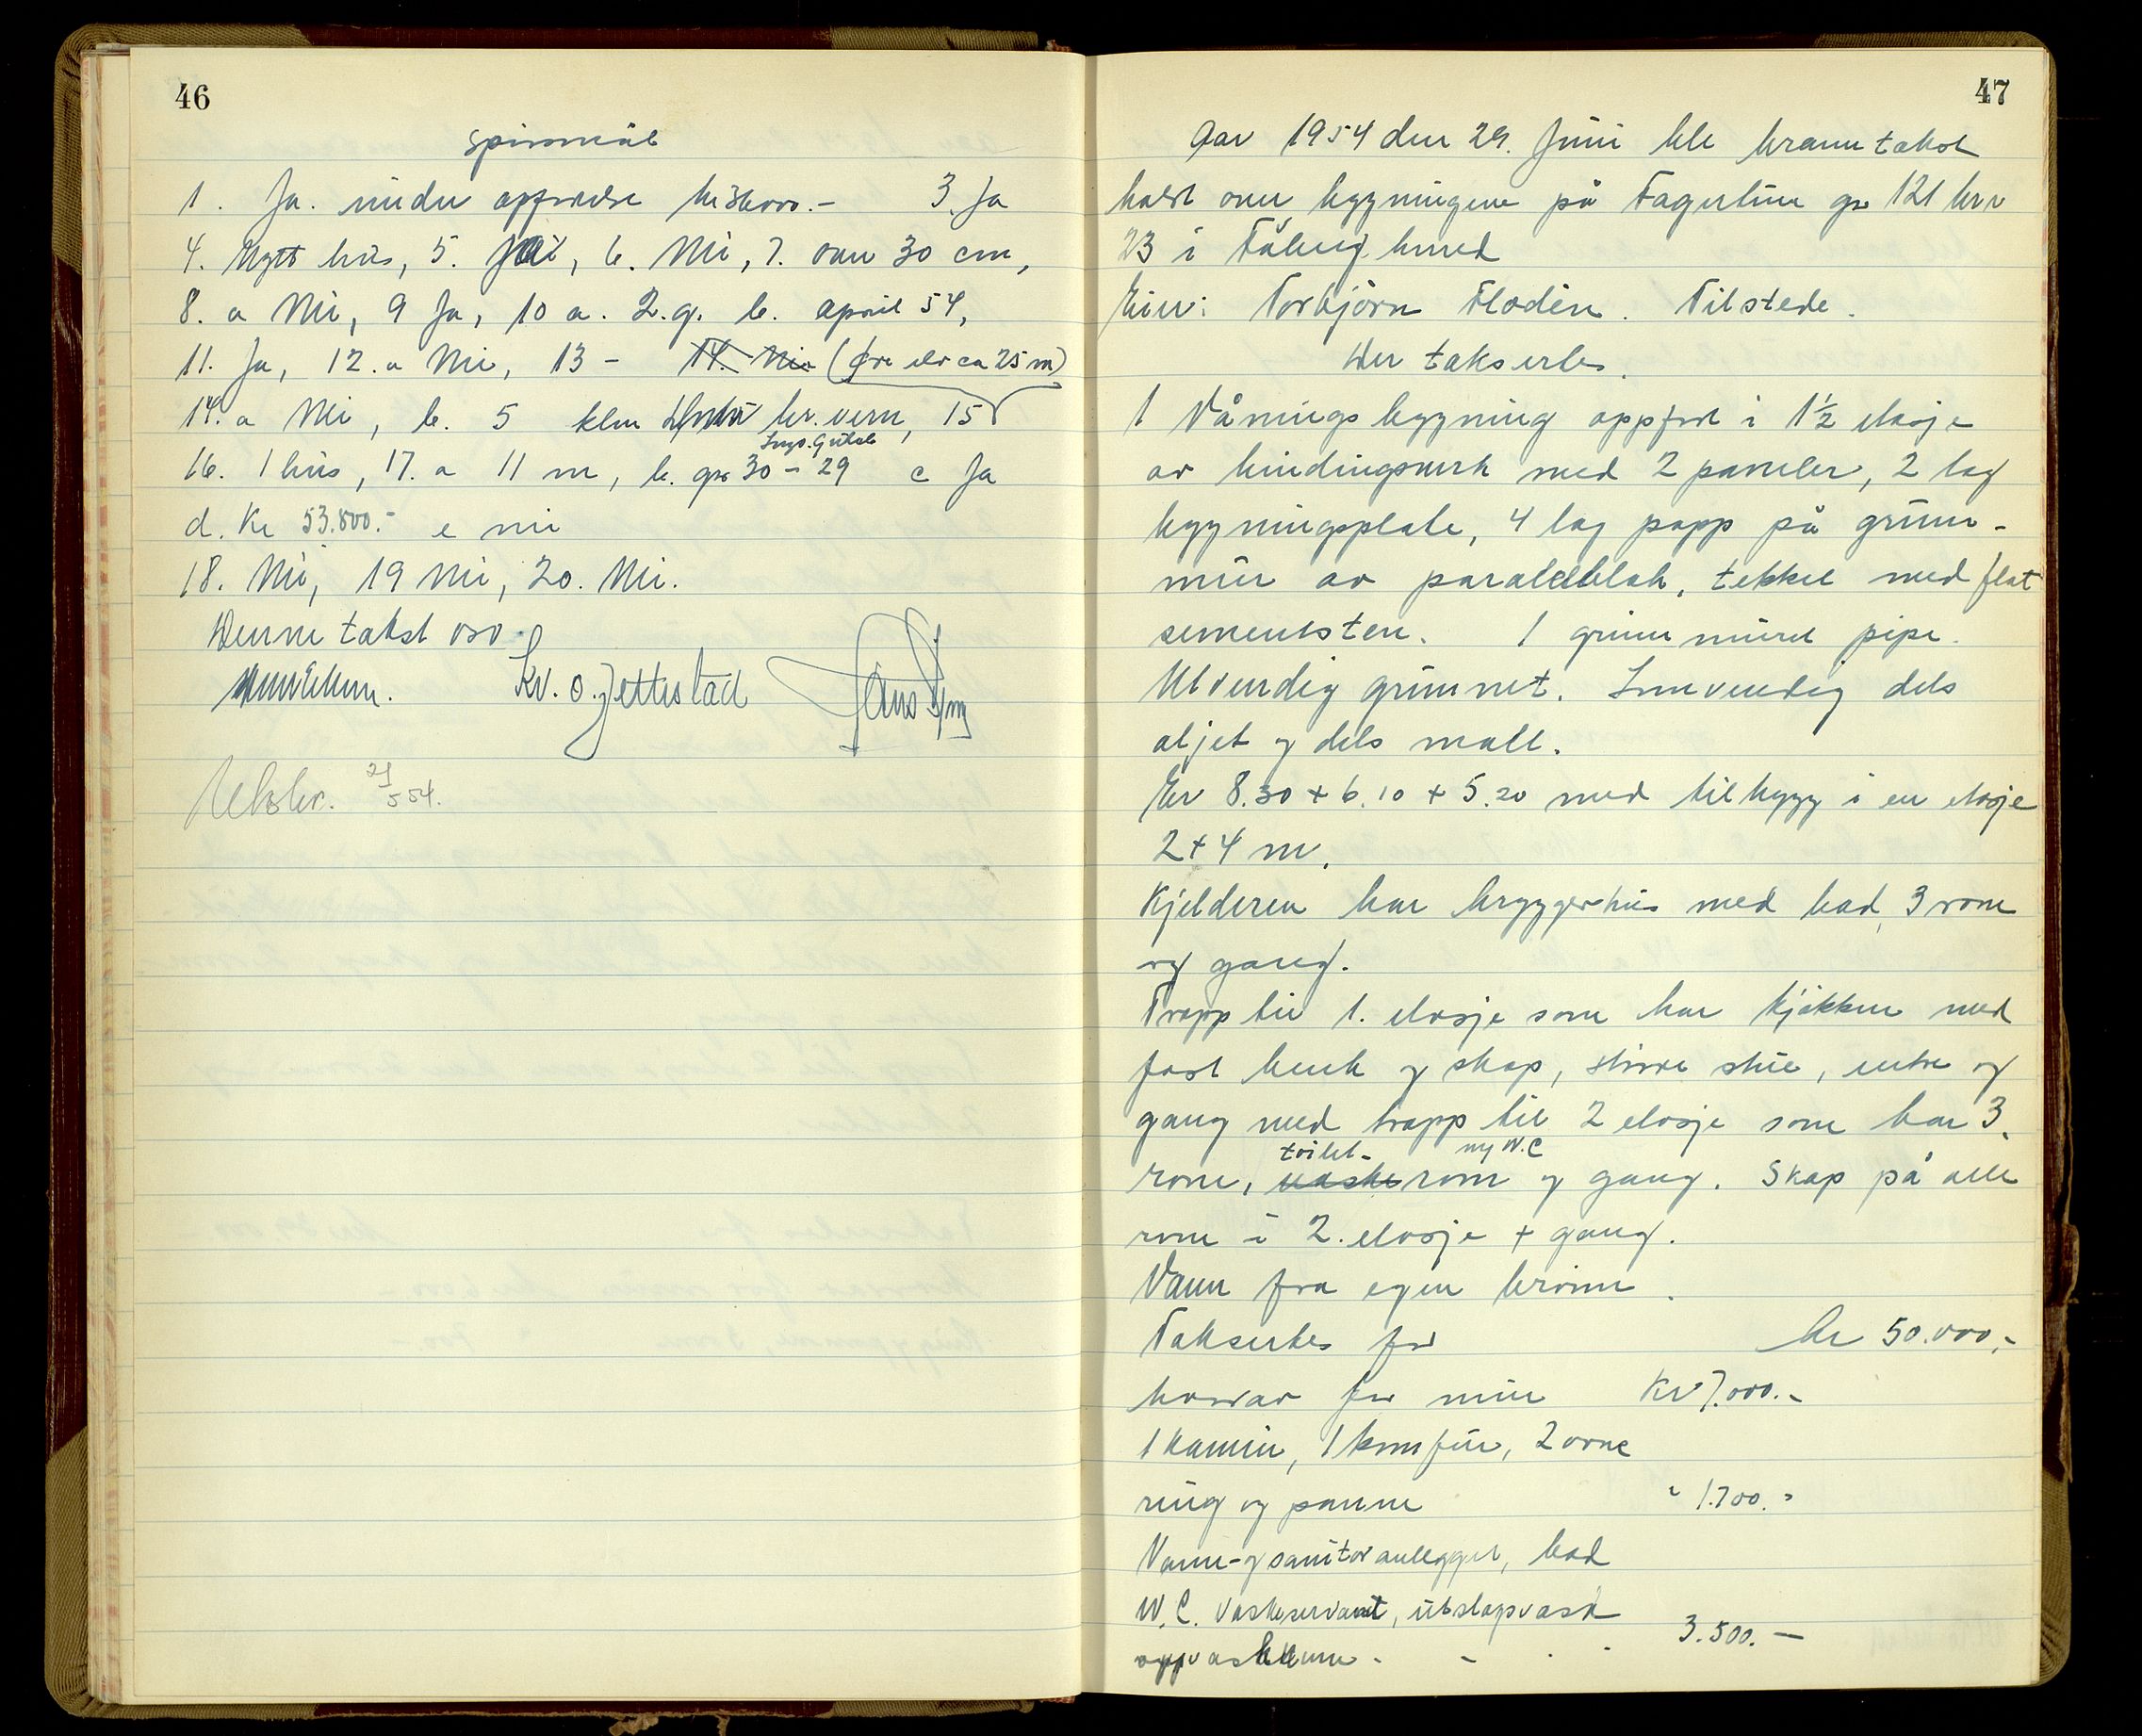 46
Spørsmål
1. Ja. under oppførelse kr 36000.- 3. Ja
4. Nytt hus, 5. Nei, 6. Nei, 7. over 30 cm,
8. a Nei, 9 Ja, 10 a. 2.g. b. april 54,
11. Ja, 12. a Nei, 13 - 14. Nei (før elv ca 25 m)
14. a Nei, b. 5 klm br.vern, 15
Lmp. Gulsb
16. 1 hus, 17. a 11 m, b. gr 30 - 29 c Ja
d. Kr 53.800.- e nei
18. Nei, 19 Nei, 20. Nei.
Denne takst osv.
Kv. O. Jettestad
Utskr. 21/5 54.
47
Aar 1954 den 29. Juni ble branntakst
holdt over bygningene på Fagertun gr 121 brn
23 i Fåberg herred
Eier: Torbjörn Flodén. Tilstede.
Der takserles.
1 Våningsbygning oppført i 1½ etasje
av bindingsverk med 2 paneler, 2 lag
bygningsplate, 4 lag papp på grunn-
mur av paralellblok, tekket med flat
sementsten. 1 grunnmuret pipe.
Utvendig grunnet. Innvendig dels
oljet og dels malt.
Er 8.30 + 6.10 + 5.20 med tilbygg i en etasje
2 + 4 m.
Kjelderen har bryggerhus med bad, 3 rom
og gang.
Trapp til 1. etasje som har kjøkken med
fast benk og skap, større stue, entre og
gang med trapp til 2 etasje som har 3
toilet- og W.C
rom, vaskerom og gang. Skap på alle
rom i 2. etasje + gang.
Vann fra egen brønn.
Takserles for kr 50.000,-
hvorav for mur Kr 7.000.-
1 kamin, 1 komfur, 2 ovne
ring og panne " 1.700.-
Vann- og sanitæranlegget, bad
W.C. Vaskeservant, utslagsvask
oppvaskkum - - 3.500.-